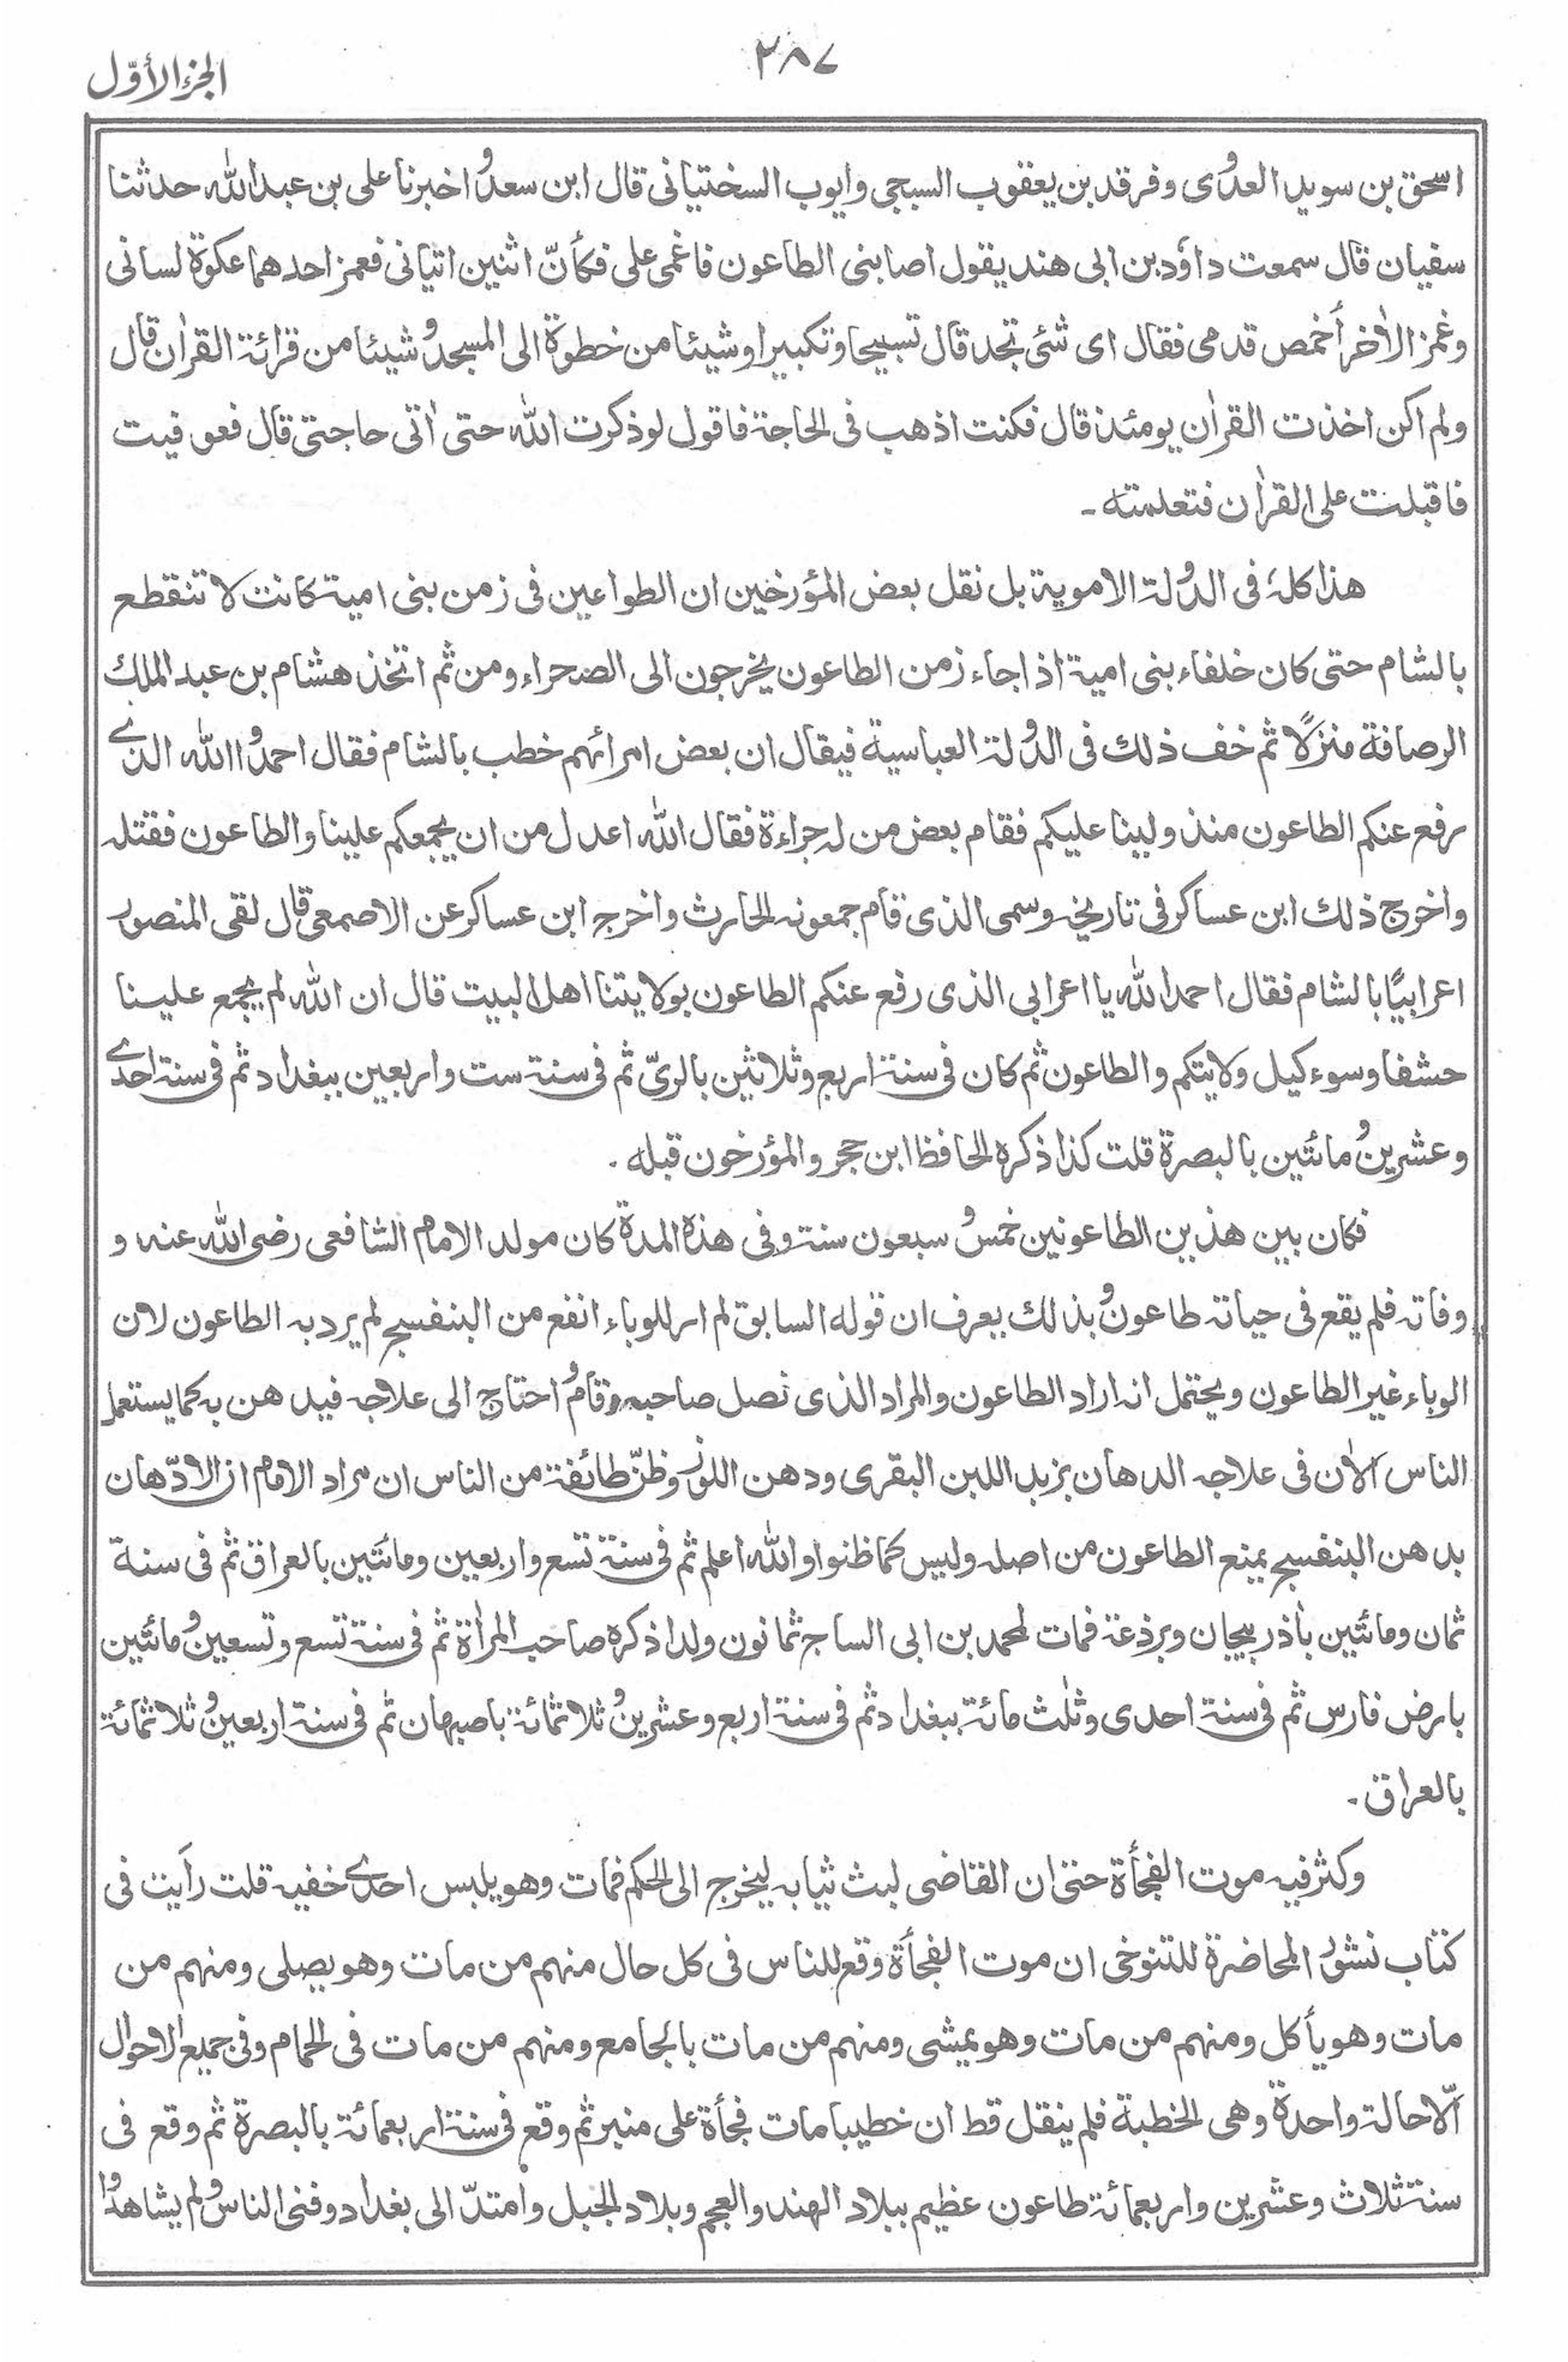 ٢٨٧
الجزء الأوّل
اسحق بن سويد العدوى وفرقد بن يعقوب السبجى وايوب السختيانى قال ابن سعد واخبرنا على بن عبد الله حدثنا
سفيان قال سمعت داؤد بن ابى هند يقول اصابنى الطاعون فاغمى على فكأنّ اثنين اتيانى فغمز احدهما عكوة لسانى
وغمز الاٰخر أخمص قدمى فقال اى شئ تجد قال تسبيحا وتكبيرا وشيئا من خطوة الى المسجد وشيئا من قرائة القراٰن قال
ولم اكن اخذت القراٰن يومئذ قال فكنت اذهب فى الحاجة فاقول لو ذكرت الله حتى اٰتى حاجتى قال فعوفيت
فاقبلت على القراٰن فتعلمته ۔
هذا كله فى الدولة الاموية بل نقل بعض المؤرخين ان الطواعين فى زمن بنى امية كانت لا تنقطع
بالشام حتى كان خلفاء بنى امية اذا جاء زمن الطاعون يخرجون الى الصحراء ومن ثم اتخذ هشام بن عبد الملك
الرصافة منزلًا ثم خف ذلك فى الدولة العباسية فيقال ان بعض امرائهم خطب بالشام فقال احمدوا الله الذے
رفع عنكم الطاعون منذ ولينا عليكم فقام بعض من له جراءة فقال الله اعدل من ان يجمعكم علينا والطاعون فقتله
واخرج ذلك ابن عساكر فى تاريخه وسمى الذى قام جمعونه الحارث واخرجه ابن عساكر عن الاصمعى قال لقى المنصور
اعرابيًا بالشام فقال احمد الله يا اعرابى الذى رفع عنكم الطاعون بولايتنا اهل البيت قال ان الله لم يجمع علينا
حشفا وسوء كيل ولايتكم والطاعون ثم كان فى سنة اربع وثلاثين بالرىّ ثم فى سنة ست واربعين ببغداد ثم فى سنة احدے
وعشرين ومائتين بالبصرة قلت كذا ذكره الحافظ ابن حجر والمؤرخون قبله ۔
فكان بين هذين الطاعونين خمس وسبعون سنة وفى هذه المدة كان مولد الامام الشافعى رضى الله عنه و
وفاته فلم يقع فى حياته طاعون وبذلك يعرف ان قوله السابق لم ار للوباء انفع من البنفسج لم يرد به الطاعون لان
الوباء غير الطاعون ويحتمل انه اراد الطاعون والمراد الذى نصل صاحبه وقام واحتاج الى علاجه فيدهن به كما يستعمل
الناس الاٰن فى علاجه الدهان بزبد اللبن البقرى ودهن اللوز وظنّ طائفة من الناس ان مراد الامام ان الادّهان
بدهن البنفسج يمنع الطاعون من اصله وليس كما ظنوا والله اعلم ثم فى سنة تسع واربعين ومائتين بالعراق ثم فى سنة
ثمان ومائتين باذربيجان وبرذعة فمات لمحمد بن ابى الساج ثمانون ولدا ذكره صاحب المراٰة ثم فى سنة تسع وتسعين ومائتين
بارض فارس ثم فى سنة احدى وثلٰث مائة ببغداد ثم فى سنة اربع وعشرين وثلاثمائة باصبهان ثم فى سنة اربعين وثلاثمائة
بالعراق ۔
وكثر فيه موت الفجأة حتى ان القاضى لبث ثيابه ليخرج الى الحكم فمات وهو يلبس احدے خفيه قلت رأيت فى
كتاب نشور المحاضرة للتنوخى ان موت الفجأة وقع للناس فى كل حال منهم من مات وهو يصلى ومنهم من
مات وهو يأكل ومنهم من مات وهو يمشى ومنهم من مات بالجامع ومنهم من مات فى الحمام وفى جميع الاحوال
الّا حالة واحدة وهى الخطبة فلم ينقل قط ان خطيبا مات فجأة على منبر ثم وقع فى سنة اربعمائة بالبصرة ثم وقع فى
سنة ثلاث وعشرين واربعمائة طاعون عظيم ببلاد الهند والعجم وبلاد الجبل وامتدّ الى بغداد وفنى الناس ولم يشاهدوا